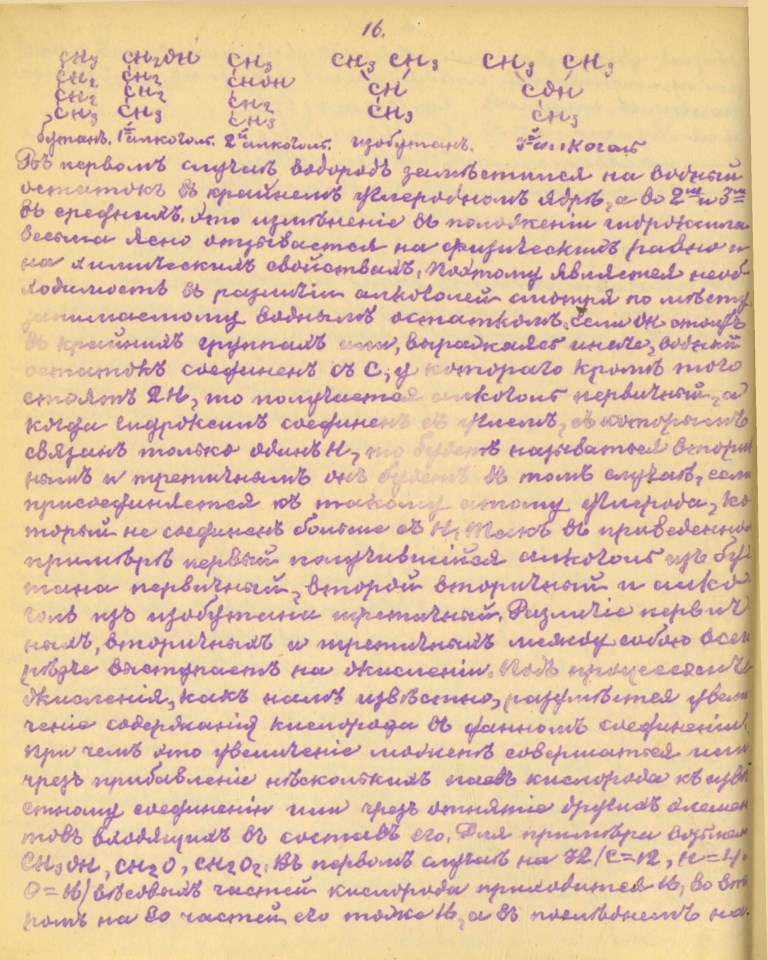 16.
CH3 CH2OH CH3 CH3 CH3 CH3 CH3
CH2 CH2 CHOH CH COH
CH2 CH2 CH2 CH3 CH3
CH3 CH3 CH3
бутанъ. 1й алкоголь. 2й алкоголь. изобутанъ. 3й алкоголь
Въ первомъ случаѣ водородъ замѣстился на водный
остатокъ въ крайнемъ углеродномъ ядрѣ, а во 2мъ и 3мъ
въ среднихъ. Это измѣненіе въ положеніи гидроксила
весьма ясно отзывается на физическихъ равно и
на химическихъ свойствахъ. Поэтому является необ
ходимость въ различіи алкоголей смотря по мѣсту
занимаемому воднымъ остаткомъ. если ОН стоитъ
въ крайнихъ группахъ или, выражаясь иначе, водный
остатокъ соединенъ съ С, у котораго кромѣ того
стоятъ 2Н, то получается алкоголь первичный, а
когда гидроксилъ соединенъ съ угле[мъ], съ которымъ
связанъ только одинъ Н, то будетъ называться вторич
нымъ и третичнымъ онъ будетъ въ томъ случаѣ, если
присоединяется къ такому атому углерода, ко
торый не соединенъ больше съ Н. Такъ въ приведенно
примѣрѣ первый получившійся алкоголь изъ бу
тана первичный, второй вторичный и алко
голь изъ изобутана третичный. Различіе первич
ныхъ, вторичныхъ и третичныхъ между собою всего
рѣзче выступаетъ на окисленіи. Подъ процессомъ
окисленія, какъ намъ извѣстно, разумѣется увели
ченіе содержанія кислорода въ данномъ соединеніи,
при чемъ это увеличеніе можетъ совершаться или
чрезъ прибавленіе нѣсколькихъ паевъ кислорода къ извѣ
стному соединенію или чрезъ отнятіе другихъ элемен
товъ входящихъ въ составъ его. Для примѣра возьмемъ
CH3OH, CH2O, CH2O2. Въ первомъ случаѣ на 32 /C=12, H=4,
O=16/ вѣсовыхъ частей кислорода приходится 16, во вто
ромъ на 30 частей его тоже 16, а въ послѣднемъ на